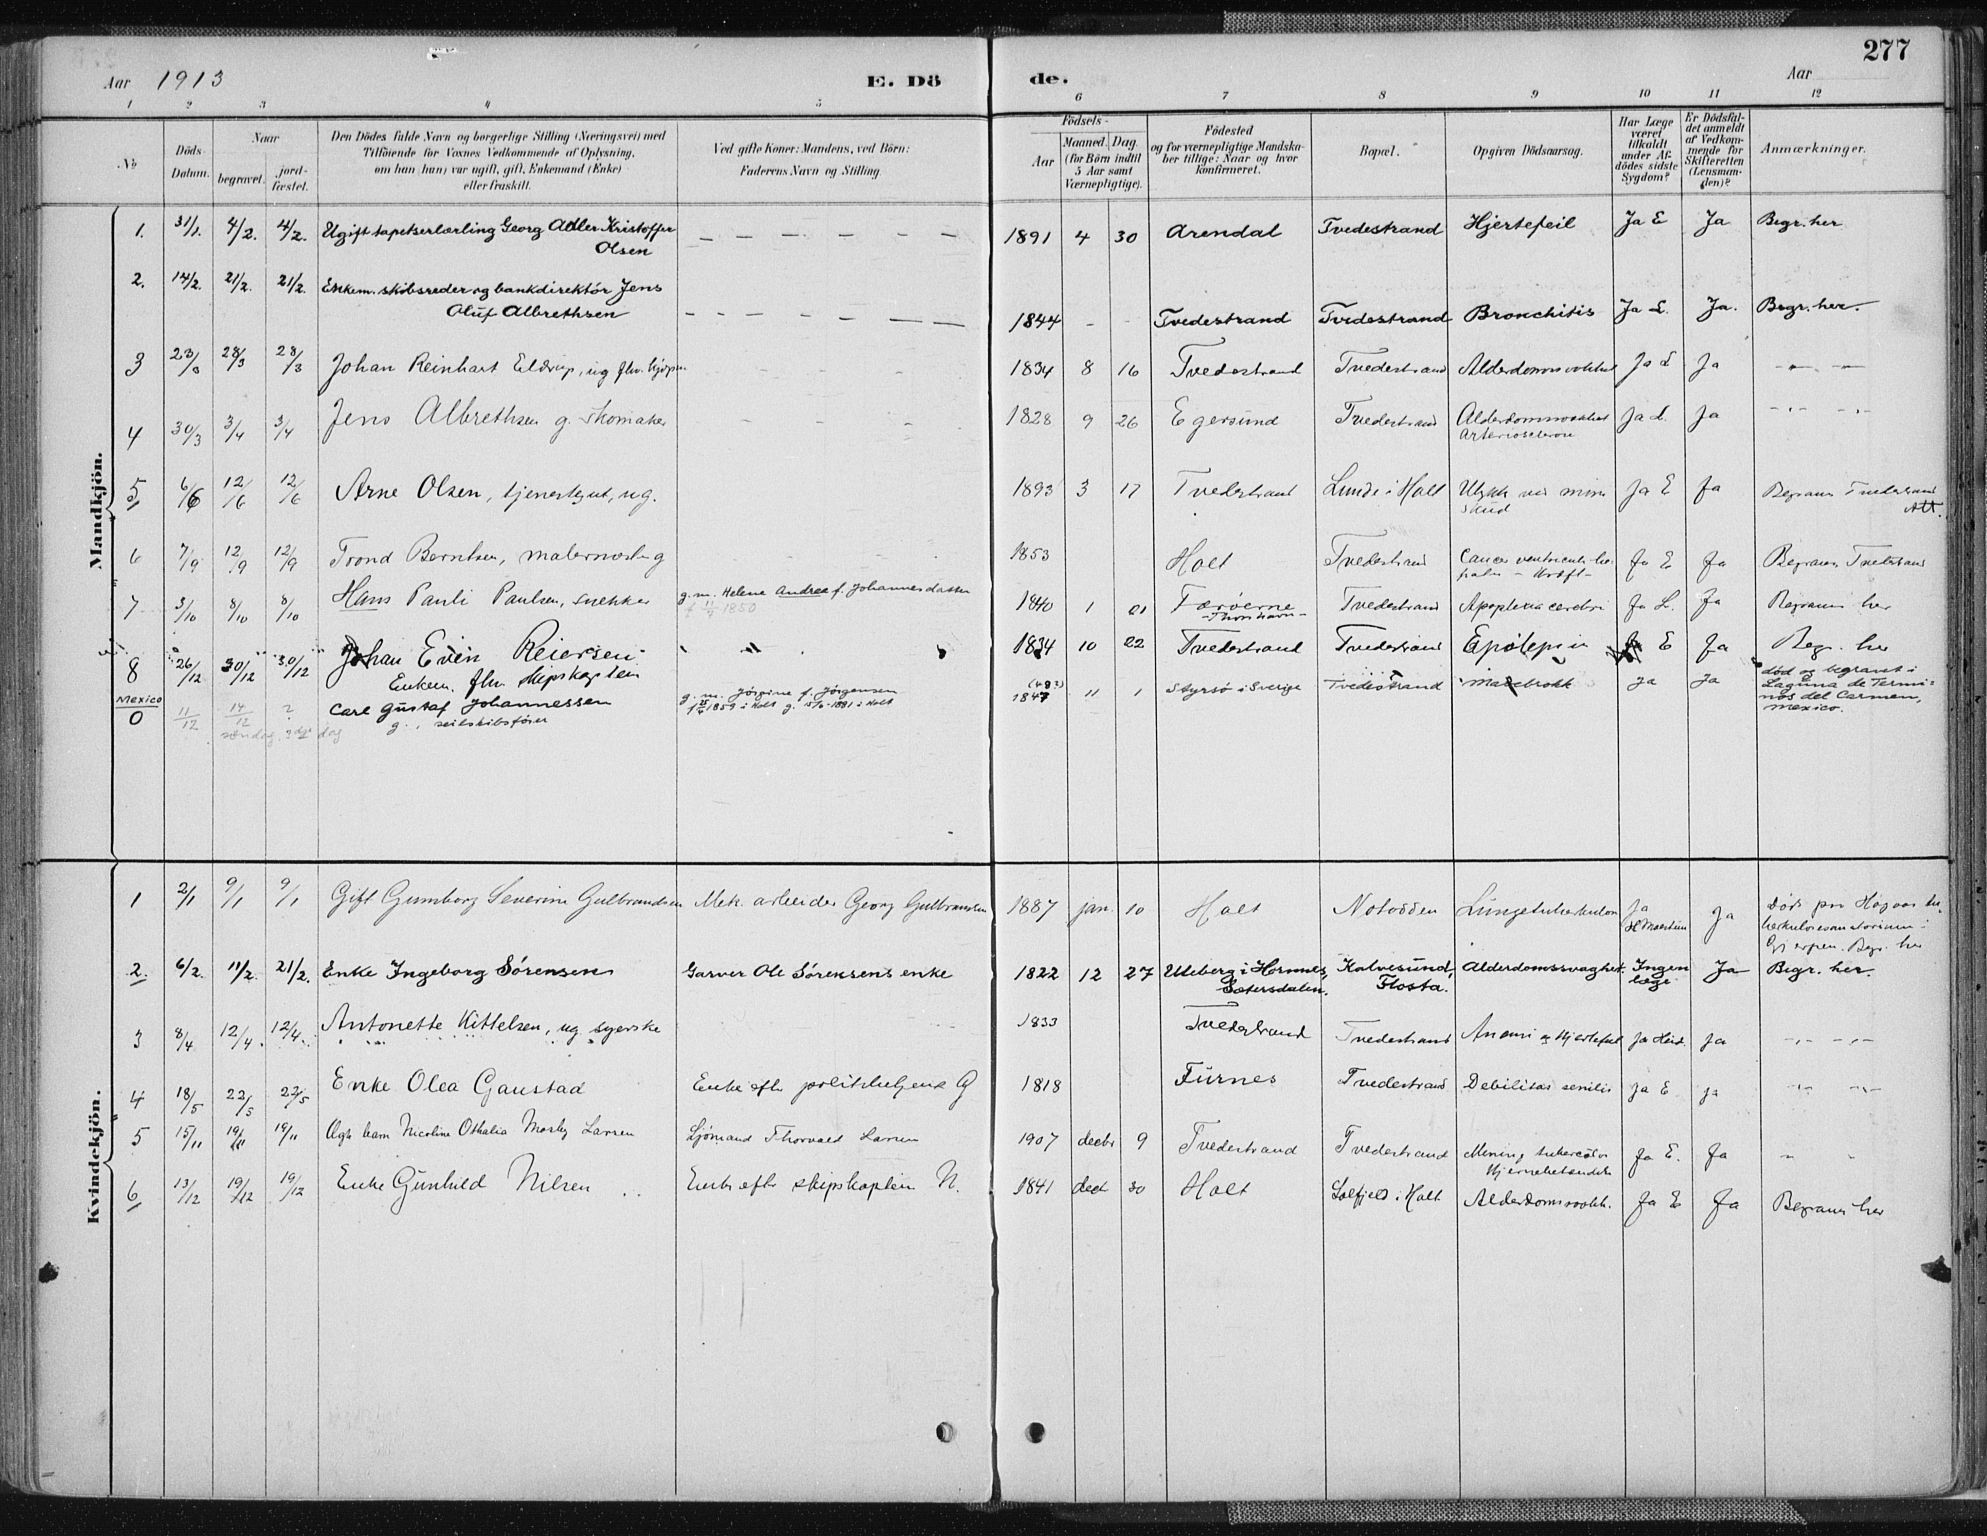 277
Aar 1913 E. Dö de. Aar
1 2 3 4 5 6 7 8 9 10 11 12
No
Döds-Datum.
Naar
begravet.
jord-fæstet.
Den Dödes fulde Navn og borgerlige Stilling (Næringsvei) med
Tilföiende for Voxnes Vedkommende af Oplysning,
om han (hun) var ugift, gift, Enkemand (Enke)
eller fraskilt.
Ved gifte Koner: Mandens, ved Börn:
Faderens Navn og Stilling.
Födsels-
Aar
Maaned. Dag.
(for Börn indtil
5 Aar samt
Værnepligtige).
Födested
og for værnepligtige Mandska-
ber tillige: Naar og hvor
konfirmeret.
Bopæl.
Opgiven Dödsaarsag.
Har Læge
været
tilkaldt
under Af-
dödes sidste
Sygdom?
Er Dödsfal-
det anmeldt
af Vedkom-
mende for
Skifteretten
(Lensman-
den)?
Anmærkninger.
Mandkjön.
1. 31/1. 4/2. 4/2. Ugift tapetserlærling Georg Adler Kristoffer 1891 4 30 Arendal Tvedestrand Hjertefeil Ja E Ja Begr. her
Olsen
2. 14/2. 21/2. 21/2. Enkem. skibsreder og bankdirektör Jens
Oluf Albrethsen 1844 - - Tvedestrand Tvedestrand Bronchitis Ja L. Ja. Begr. her.
3 23/3 28/3 28/3 Johan Reinhart Eldrup, ug fhv. kjøpm 1834 8 16 Tvedestrand Tvedestrand Ja L Ja -"- -"-
4 30/3 3/4 3/4 Jens Albrethsen g. skomaker 1828 9 26 Egersund Tvedestrand Ja L. Ja -"- -"-
5 6/6 12/6 12/6 Arne Olsen, tjenestegut, ug. 1893 3 17 Tvedestrand Lunde i Holt Ulykke ved mine Ja E Ja Begraven Tvedestrand
skud
6 7/9 12/9 12/9 Trond Berntsen, malermester g 1853 Holt Tvedestrand Cancer Ja E Ja Begraven Tvedestrand
- Kræft -
7 3/10 8/10 8/10 Hans Pauli Paulsen, snekker g.m. Helene Andrea f. Johannesdatter 1840 1 01 Færöerne Tvedestrand Apoplexia cerebri Ja L. Ja Begraven her
1850 - Thorshavn -
8 26/12 30/12 30/12 Johan Even Reiersen 1834 10 22 Tvedestrand Tvedestrand Epilepsi E Ja Begr. her
Enkem. fhv. skipskaptein
Mexico
0 11/12 14/12 ? Carl Gustaf Johannessen g. m. Jörgine f. Jörgensen 1847 11 1 Styrsö i Sverige Tvedestrand Mavebrokk Ja Ja død og begravet i
g., seilskibsfører 1859 i Holt g. 1881 i Holt Laguna de Termi-
søndag dag nos del Carmen,
Mexico.
Kvindekjön.
1 2/1 9/1 9/1 Gift Gunborg Severine Gulbrandsen Mek. arbeider Georg Gulbrandsen 1887 jan. 10 Holt Notodden Lungetuberkulose Ja Ja
Begr. her
2. 6/2. 11/2. 21/2. Enke Ingeborg Sörensen Garver Ole Sörensens enke 1822 12 27 Uleberg i Hornnes, Kalvesund, Alderdomssvaghet. Ingen Ja Begr. her.
Sætersdalen. Flosta. læge
3 8/4 12/4. 12/4. Antonette Kittelsen, ug. syerske 1833 Tvedestrand Tvedestrand Anemi og Hjertefeil Ja Ja -"- -"-
4 18/5 22/5 22/5 Enke Olea Gaustad Enke efter politibetjent G 1818 Furnes Tvedestrand Debilitas senilis Ja E ja -"- -"-
5 15/11 19/11 19/11 Ægte barn Nicoline Othalia Mosby Larsen Sjömand Thorvald Larsen 1907 decbr 9 Tvedestrand Tvedestrand Ja E. Ja " "
6 13/12 19/12 19/12 Enke Gunhild Nilsen Enke efter skipskaptein N. 1841 dect 30 Holt Solfjeld i Holt Alderdomssvakh. Ja E Ja Begraven her